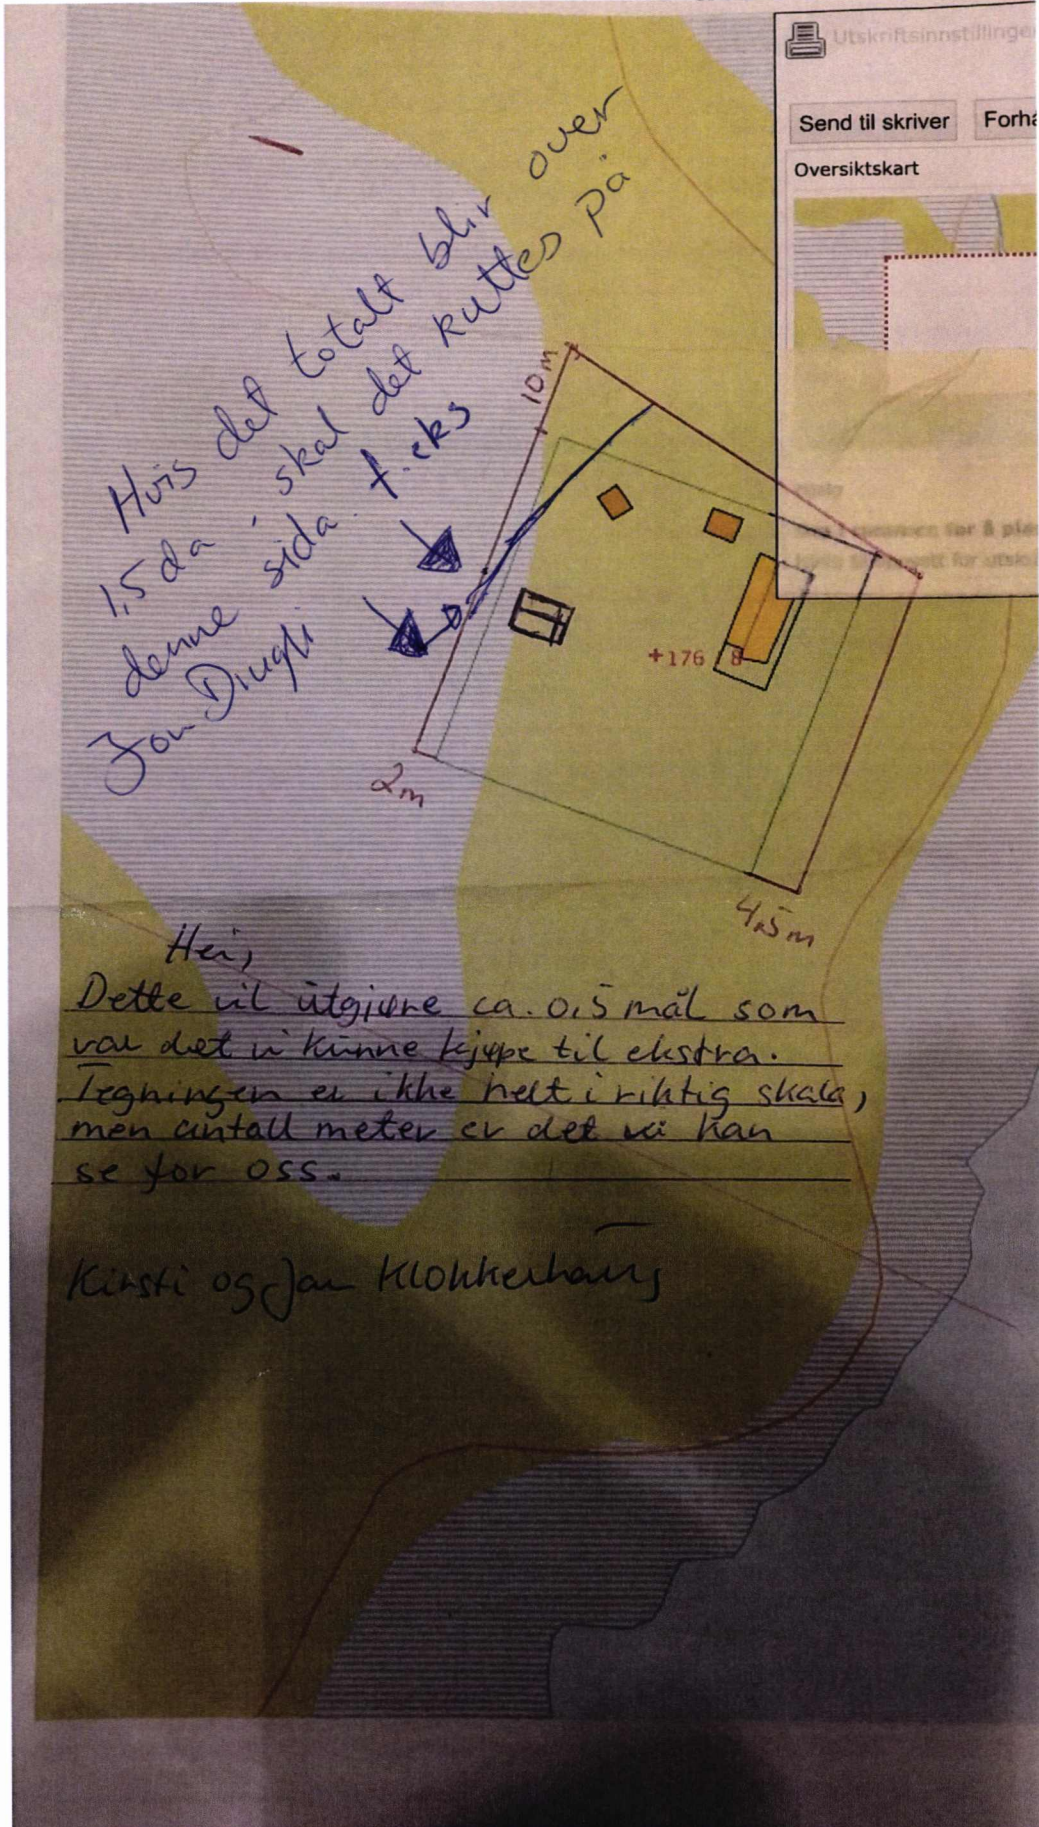 Utskriftsinnstillinge
Send til skriver
Forhå
Oversiktskart
Hvis det totalt blir over
1,5 da skal det kuttes på
denne sida. f.eks
Jon Dingli
10m
+176 8
2m
4,5m
Hei,
Dette vil utgjøre ca. 0,5 mål som
var det vi kunne kjøpe til ekstra.
Tegningen er ikke helt i riktig skala,
men antall meter er det vi kan
se for oss.
Kirsti og Jan Klokkerhaug